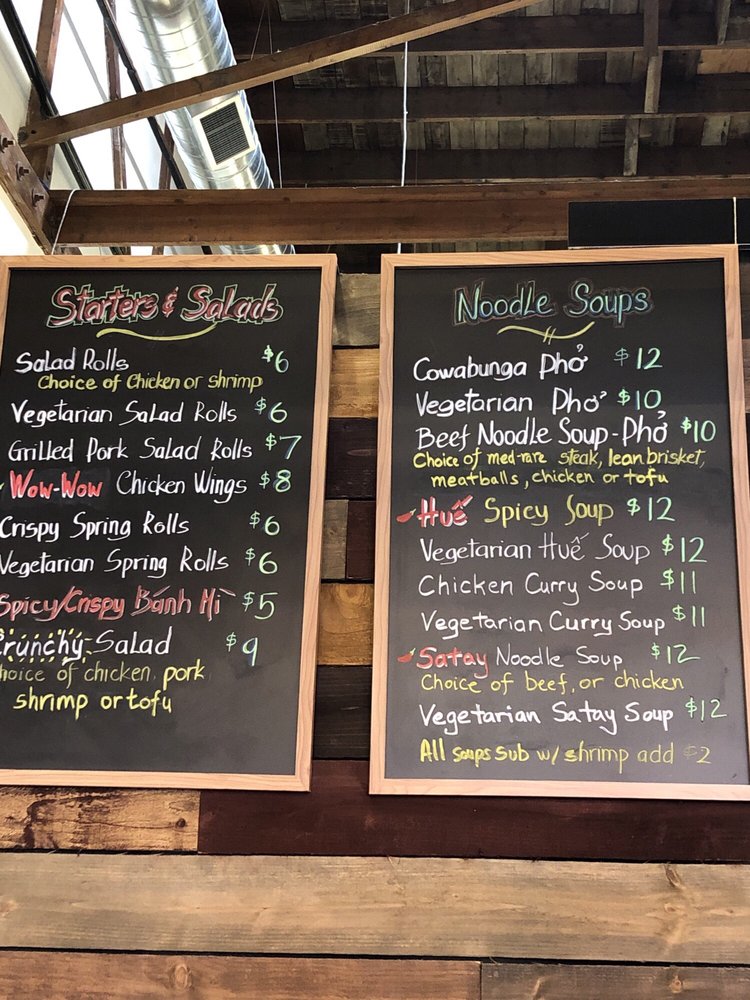 Starters & Salads
Salad Rolls $6
Choice of Chicken or shrimp
Vegetarian Salad Rolls $6
Grilled Pork Salad Rolls $7
Wow-Wow Chicken Wings $8
Crispy Spring Rolls $6
Vegetarian Spring Rolls $6
Spicy/Crispy Bánh Mì $5
Crunchy Salad $9
Choice of chicken, pork
shrimp or tofu
Noodle Soups
Cowabunga Phở $12
Vegetarian Phở $10
Beef Noodle Soup - Phở $10
Choice of med-rare steak, lean brisket,
meatballs, chicken or tofu
Huế Spicy Soup $12
Vegetarian Huế Soup $12
Chicken Curry Soup $11
Vegetarian Curry Soup $11
Satay Noodle Soup $12
Choice of beef, or chicken
Vegetarian Satay Soup $12
All soups sub w/ shrimp add $2